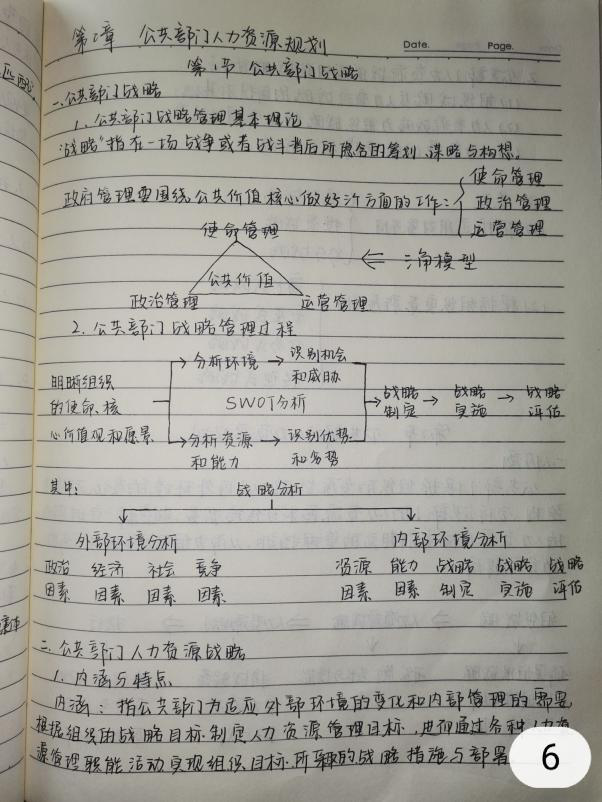 第2章 公共部门人力资源规划
Date. Page.
第1节 公共部门战略
一、公共部门战略
1、公共部门战略管理基本理论
"战略"指在一场战争或者战斗背后所隐含的筹划、谋略与构想。
使命管理
政府管理要围绕公共价值核心做好三方面的工作：政治管理
运营管理
使命管理
公共价值 ⇐ 三角模型
政治管理 运营管理
2、公共部门战略管理过程
→分析环境→识别机会和威胁
明晰组织的使命、核心价值观和愿景
SWOT分析 →战略制定→战略实施→战略评估
→分析资源和能力→识别优势和劣势
其中：战略分析
外部环境分析 内部环境分析
政治 经济 社会 竞争 资源 能力 战略 战略 战略
因素 因素 因素 因素 因素 因素 制定 实施 评估
二、公共部门人力资源战略
1、内涵与特点
内涵：指公共部门为适应外部环境的变化和内部管理的需要
根据组织的战略目标制定人力资源管理目标，进而通过各种人力资
源管理职能活动实现组织目标所采取的战略措施与部署
6
匹配